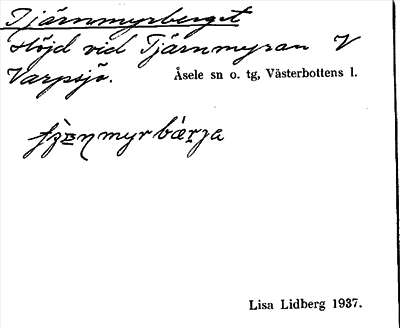 Tjärnmyrberget
Höjd vid Tjärnmyran V
Varpsjö.
Åsele sn o. tg, Västerbottens l.
Lisa Lidberg 1937.